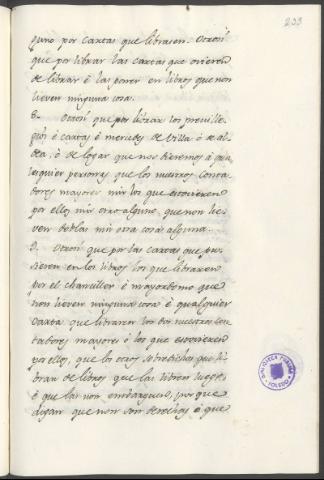 233
guno por cartas que librasen. Otrosi
que por librar las cartas que ovieren
de librar ó las poner en libros que non
lieven ninguna cosa.
8.. Otrosi que por librar los preville-
gios é cartas é mercedes de villa ó de al-
dea, ó de logar que nos dieremos á qua-
lesquier personas que los nuestros Conta-
dores mayores nin los que estovieren
por ellos nin otro alguno, que non lie-
ven doblas nin otra cosa alguna.
9. Otrosi que por las cartas que pu-
sieren en los libros los que libraren
por el chanciller é mayordomo que
non lieven ninguna cosa é qualquier
carta que libraren los dos nuestros con-
tadores mayores ó los que estovieren
por ellos, que los otros sobredichos que li-
bran de libros que las libren luego,
é que las non embarguen, porque
digan que non son derechos é que
BIBLIOTECA PUBLICA
TOLEDO